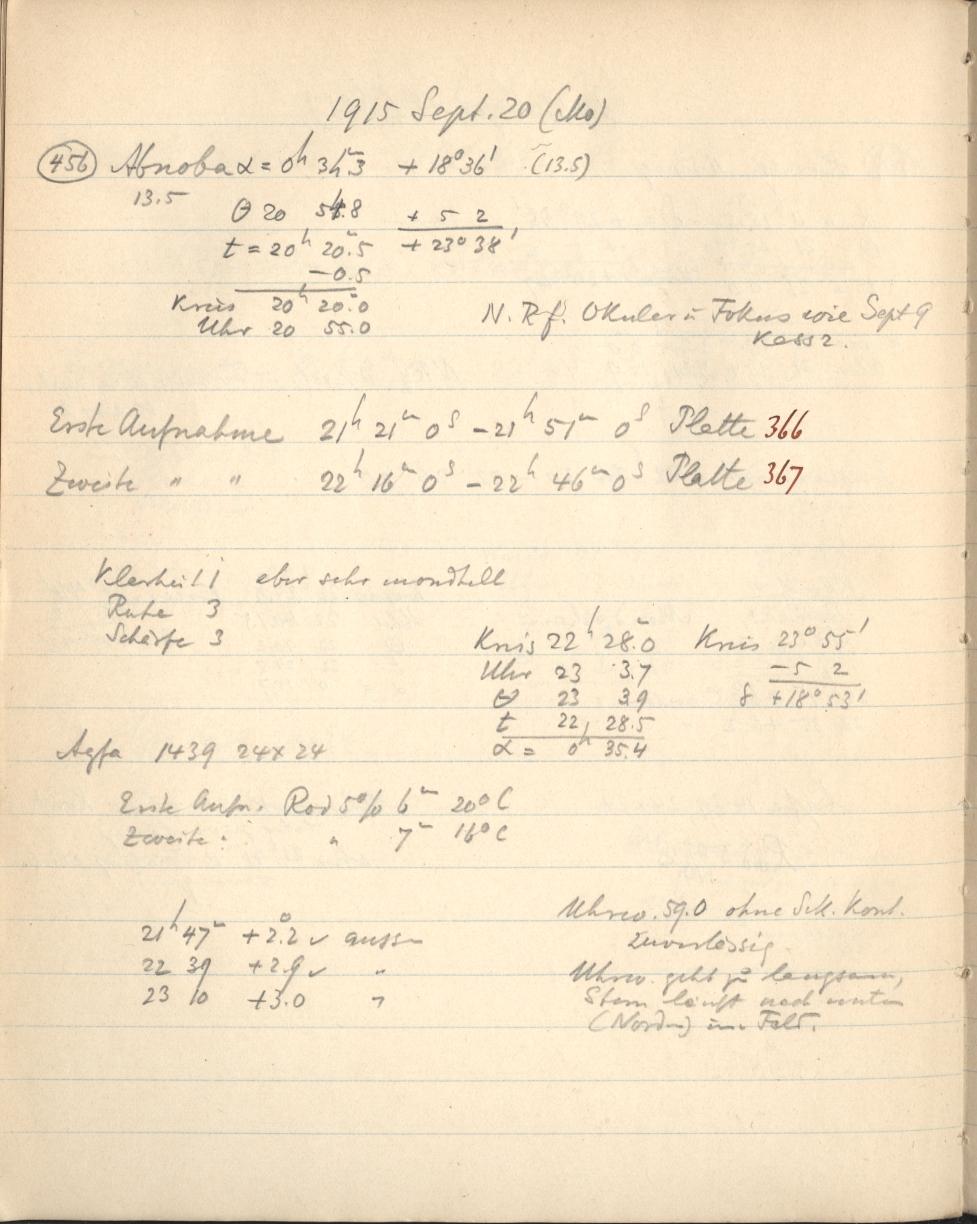 1915 Sept. 20 (Mo)
456 Abnoba α = 0h 34m.3 + 18°36' (13.5)
13.5 θ 20 54.8 + 5 2
t = 20h 20m.5 + 23°38'
-0.5
Kreis 20h 20m.0
Uhr 20 55.0
N. Rf. Okular u Fokus wie Sept 9
Kass 2.
Erste Aufnahme 21h 21m 0s - 21h 51m 0s Platte 366
Zweite " " 22h 16m 0s - 22h 46m 0s Platte 367
Klarheit 1 aber sehr mondhell
Ruhe 3
Schärfe 3
Kreis 22h 28m.0 Kreis 23° 55'
Uhr 23 3.7 -5 2
θ 23 3.9 δ +18°53'
t 22 28.5
α = 0h 35.4
Agfa 1439 24x24
Erste Aufn. Rod 5% 6m 20°C
Zweite " " 7m 16°C
21h 47m +2.2 ✓ aussen
22 39 +2.9 ✓ "
23 10 +3.0 "
Uhrw. 59.0 ohne Sek. Kont.
zuverlässig.
Uhrw. geht zu langsam,
Stern läuft nach unten
(Norden) im Feld.